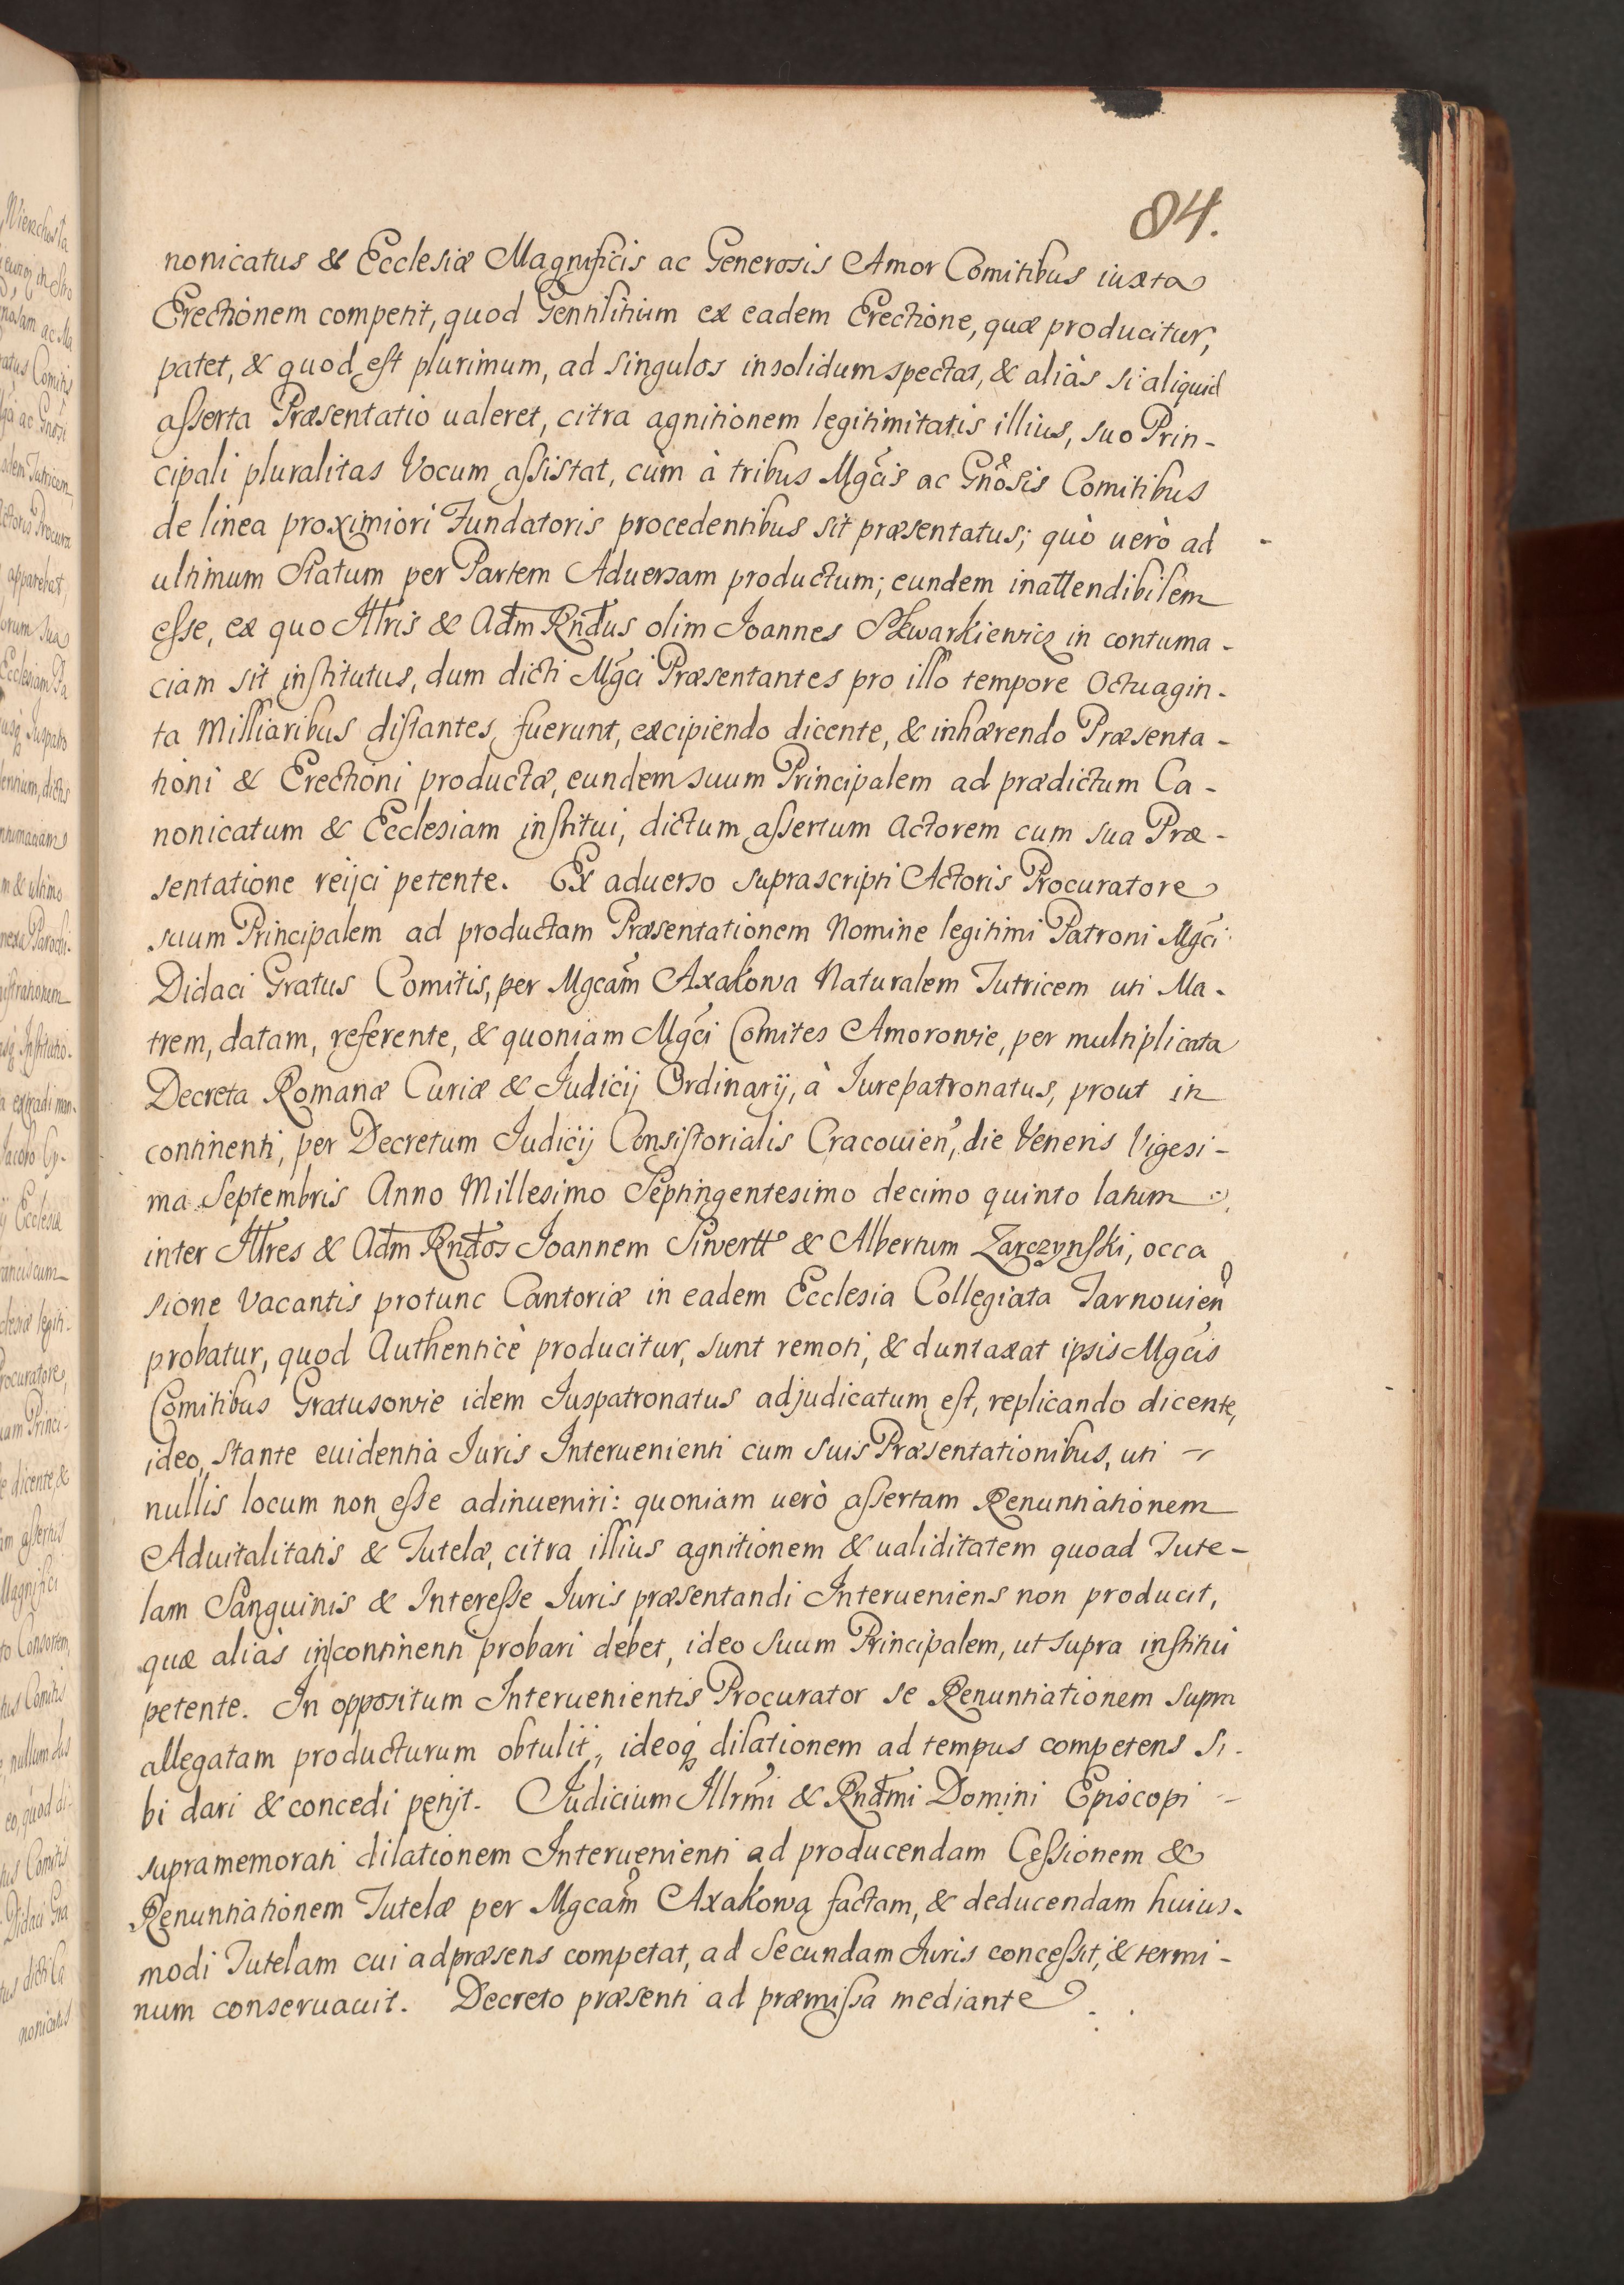 84.
nonicatus & Ecclesiæ Magnificis ac Generosis Amor Comitibus iuxta
Erectionem competit, quod Gentilitium ex eadem Erectione, quæ producitur,
patet, & quod est plurimum, ad singulos insolidum spectas, & aliàs si aliquid
asserta Præsentatio ualeret, citra agnitionem legitimitatis illius, suo Prin-
cipali pluralitas Vocum assistat, cùm à tribus Mgcis ac Gnosis Comitibus
de linea proximiori Fundatoris procedentibus sit præsentatus; quò uerò ad
ultimum Statum per Partem Aduersam productum; eundem inattendibilem
esse, ex quo Illris & Adm Rndus olim Joannes Skwarkiewicz in contuma-
ciam sit institutus, dum dicti Mgci Præsentantes pro illo tempore Octuagin-
ta Milliaribus distantes, fuerunt, excipiendo dicente, & inhærendo Præsenta-
tioni & Erectioni productæ, eundem suum Principalem ad prædictum Ca-
nonicatum & Ecclesiam institui, dictum assertum Actorem cum sua Præ-
sentatione reijci petente. Ex aduerso suprascripti Actoris Procuratore
suum Principalem ad productam Præsentationem Nomine legitimi Patroni Mgci
Didaci Gratus Comitis, per Mgcam Axakowa Naturalem Tutricem uti Ma-
trem, datam, referente, & quoniam Mgci Comites Amorowie, per multiplicata
Decreta Romanæ Curiæ & Judicij Ordinarij, à Jurepatronatus, prout in
continenti, per Decretum Judicij Consistorialis Cracouien, die Veneris Vigesi-
ma Septembris Anno Millesimo Septingentesimo decimo quinto latum
inter Illres & Adm Rndos Joannem Siwertt & Albertum Zarczynski, occa
sione Vacantis protunc Cantoriæ in eadem Ecclesia Collegiata Tarnouien
probatur, quod Authenticè producitur, sunt remoti, & duntaxat ipsis Mgcis
Comitibus Gratusowie idem Juspatronatus adjudicatum est, replicando dicente,
ideo, stante euidentia Juris Interuenienti cum suis Præsentationibus, uti
nullis locum non esse adinueniri: quoniam uerò assertam Renuntiationem
Aduitalitatis & Tutelæ, citra illius agnitionem & ualiditatem quoad Tute-
lam Sanguinis & Interesse Juris præsentandi Interueniens non producit,
quæ aliàs in continenti probari debet, ideo suum Principalem, ut supra institui
petente. In oppositum Interuenientis Procurator se Renuntiationem supra
allegatam producturum obtulit, ideoq dilationem ad tempus competens si-
bi dari & concedi petijt. Judicium Illrmi & Rndmi Domini Episcopi
supramemorati dilationem Interuenienti ad producendam Cessionem &
Renuntiationem Tutelæ per Mgcam Axakowa factam, & deducendam huius-
modi Tutelam cui adpræsens competat, ad Secundam Juris concessit, & termi-
num conseruauit. Decreto præsenti ad præmissa mediante